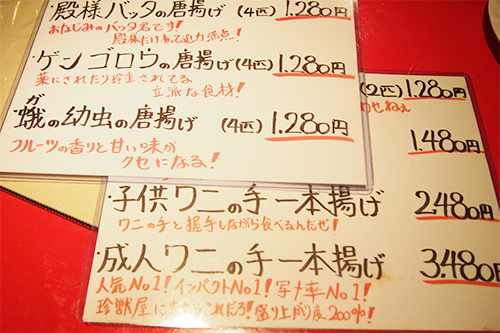 ・殿様バッタの唐揚げ(4匹)1,280円
おなじみのバッタ君です!
殿様だけあって迫力満点!
・ゲンゴロウの唐揚げ(4匹)1,280円
薬にされたり珍重されてる
立派な食材!
・蛾の幼虫の唐揚げ(4匹)1,280円
ガ
フルーツの香りと甘い味が
クセになる!
(2匹)1,280円
せねぇ
1,480円
・子供ワニの手一本揚げ 2,480円
ワニの手と握手しながら食べるんだぜ!
・成人ワニの手一本揚げ 3,480円
人気No1!インパクトNo1!写メ率No1!
珍獣屋に来たらこれだろ!盛り上がり度200%!